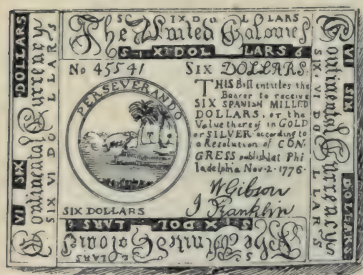 SIX DOLLARS
The United Colonies
SIX DOLLARS 6
No 45541
SIX DOLLARS.
THIS Bill entitles the
Bearer to receive
SIX SPANISH MILLED
DOLLARS, or the
Value thereof in GOLD
or SILVER according to
a Resolution of CON-
GRESS published at Phi-
ladelphia Nov. 2. 1776.
W Gibson
J Franklin
PERSEVERANDO
SIX DOLLARS
VI SIX DOLLARS
Continental Currency
SIX VI DOLLARS
Continental Currency
SIX VI DOLLARS
VI SIX DOLLARS
SIX DOLLARS
The United Colonies
DOLLARS